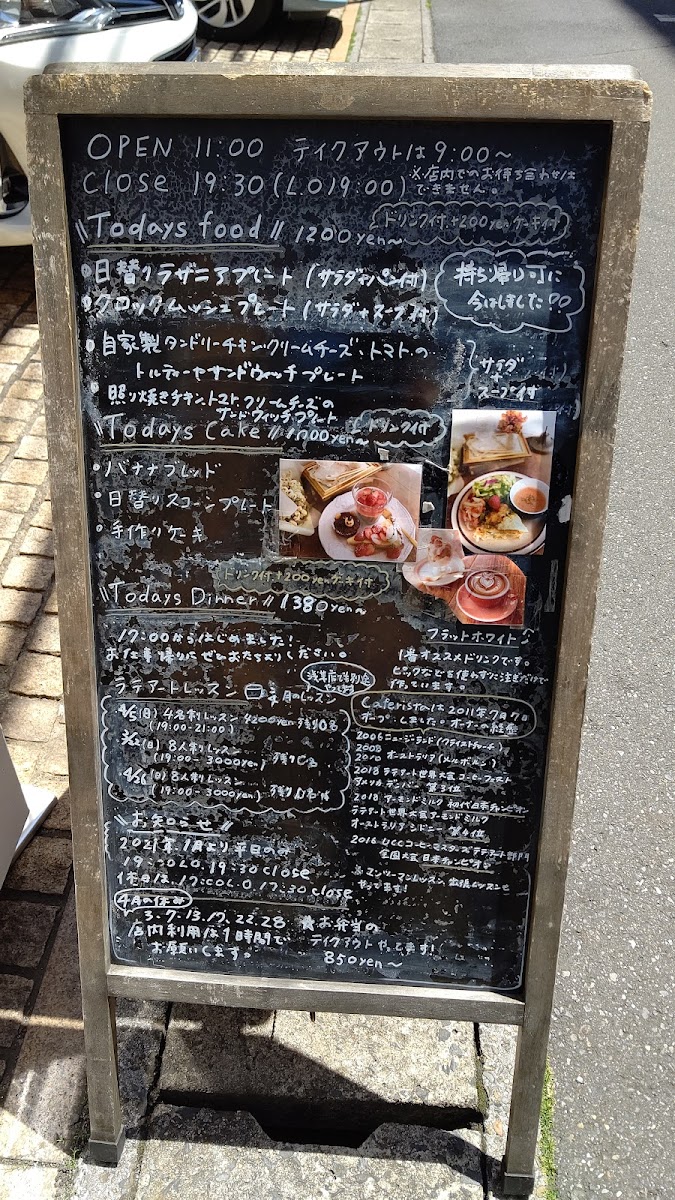 OPEN 11:00 テイクアウトは9:00~
Close 19:30(L.O19:00)
※店内でのお待ち合わせは
できません。
Todays food 1200yen~
ドリンク付 +200yenケーキ付
・日替りラザニアプレート(サラダ+パン付)
・クロックムッシュプレート(サラダ+スープ付)
持ち帰り可に
・自家製タンドリーチキン、クリームチーズ、トマトの
トルティーヤサンドウィッチプレート
サラダ
+
スープ付
・照り焼きチキン、トマト、クリームチーズの
サンドウィッチプレート
Todays Cake 1000yen~
ドリンク付
・バナナブレッド
・日替りスコーンプレート
・手作りケーキ
ドリンク付 +200yenケーキ付
Todays Dinner 1380yen~
17:00からはじめました!
お仕事帰りにぜひおたちよりください。
フラットホワイト
1番オススメドリンクです。
ピックなどを使わずに注ぐだけで
作っています。
ラテアートレッスン 3,4月のレッスン
4/5(日) 4名制レッスン 4200yen
(19:00-21:00)
(日) 8人制レッスン
(19:00- 3000yen)
(日) 8人制レッスン
(19:00- 3000yen)
Caferistaは2011年7月7日
オープンしました。オーナーの経歴
2006 ニュージーランド(クライストチャーチ)
2008
2010 オーストラリア(メルボルン)
2018 ラテアート世界大会コーヒーフェスト
アメリカ デンバー 第3位
2018 アーモンドミルク 初代日本チャンピオン
ラテアート世界大会アーモンドミルク
オーストラリア シドニー 第4位
2016 UCCコーヒーマスターズラテアート部門
全国大会 日本チャンピオン
※マンツーマンレッスン、出張レッスンも
やってます!
お知らせ
2021年1月より平日のみ
19:00L.O 19:30close
休日は17:00L.O.17:30close
4月の休み
3.7.13.17.22.28
店内利用は1時間で
お願いします。
★お弁当の
テイクアウトやってます!
850yen~